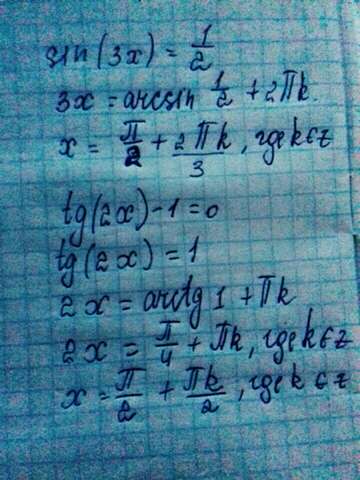 sin(3x) = 1/2
3x = arcsin 1/2 + 2πk.
x = π/2 + 2πk/3, где k∈z
tg(2x)-1=0
tg(2x) = 1
2x = arctg 1 + πk
2x = π/4 + πk, где k∈z
x = π/2 + πk/2, где k∈z